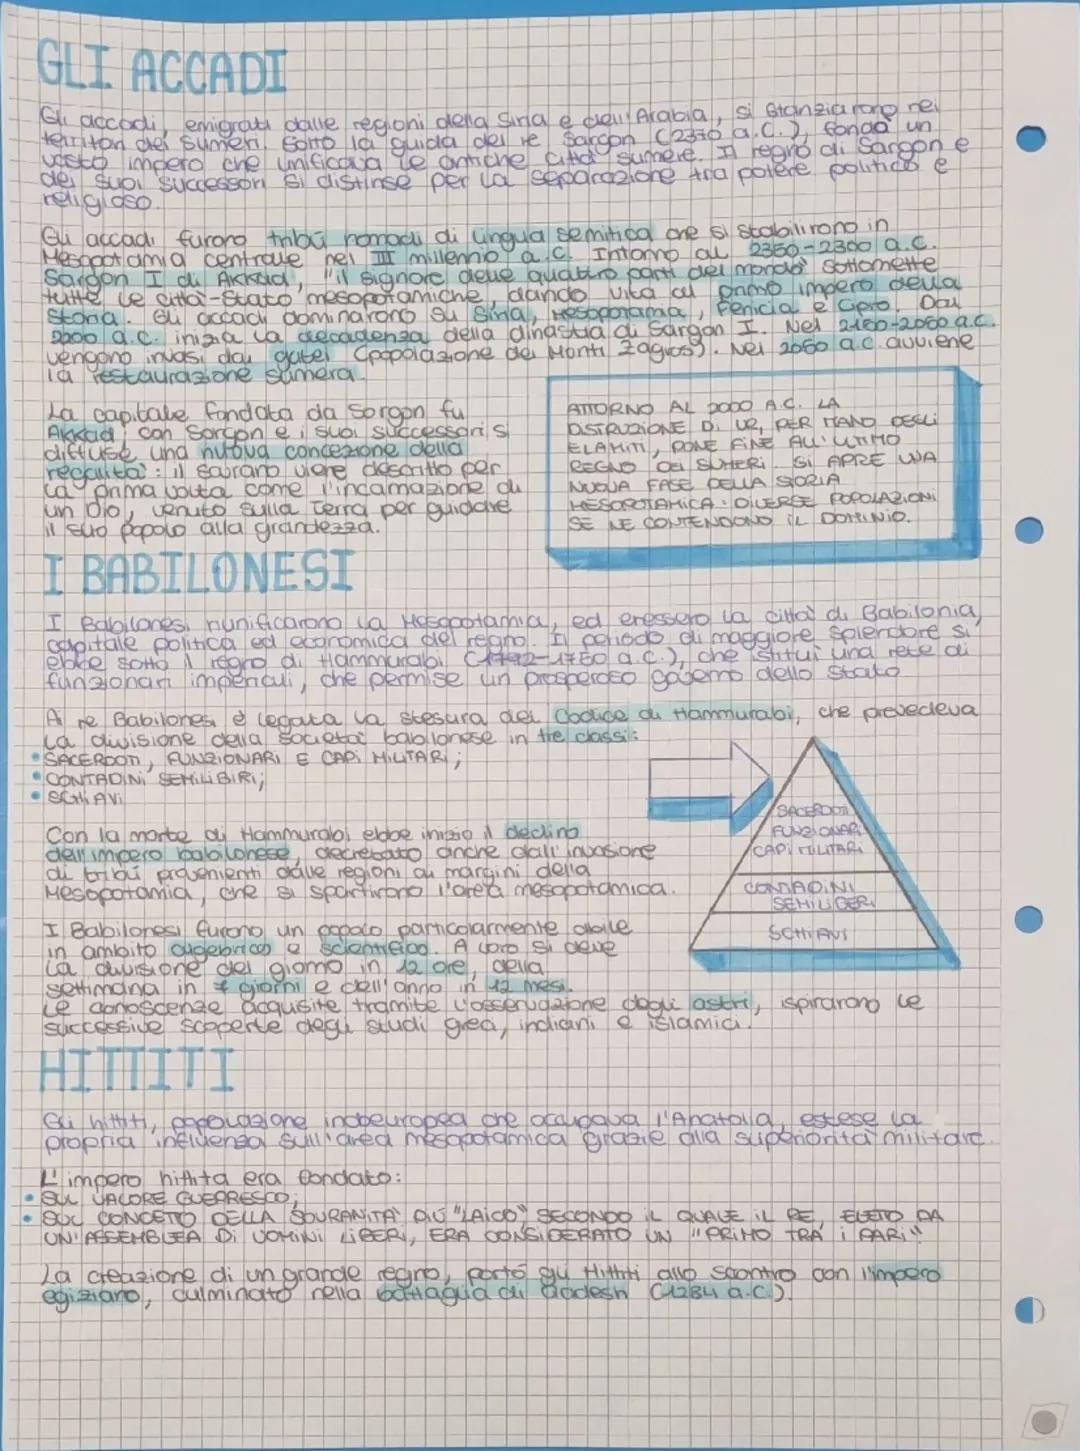 GLI ACCADI
Gli accadi, emigrati dalle regioni della Siria e dell'Arabia, si stanziarono nei
territori dei Sumeri. Sotto la guida del re Sargon (2370 a.C.), fondò un
vasto impero che unificava le antiche città sumere. Il regno di Sargon e
dei suoi successori si distinse per la separazione tra potere politico e
religioso.
Gli accadi furono tribù nomadi di lingua semitica che si stabilirono in
Mesopotamia centrale nel III millennio a.C. Intorno al 2350-2300 a.C.
Sargon I di Akkad, "il signore delle quattro parti del mondo" sottomette
tutte le città-stato mesopotamiche, dando vita al primo impero della
storia. Gli accadi dominarono su Siria, Mesopotamia, Fenicia e Cipro. Dal
2200 a.C. inizia la decadenza della dinastia di Sargon I. Nel 2160-2060 a.C.
vengono invasi dai gutei (popolazione dei Monti Zagros). Nel 2060 a.C. avviene
la restaurazione sumera.
La capitale fondata da Sargon fu
Akkad; con Sargon e i suoi successori si
diffuse una nuova concezione della
regalità: il sovrano viene descritto per
la prima volta come l'incarnazione di
un Dio, venuto sulla Terra per guidare
il suo popolo alla grandezza.
ATTORNO AL 2000 A.C. LA
DISTRUZIONE DI UR, PER MANO DEGLI
ELAMITI, PONE FINE ALL'ULTIMO
REGNO DEI SUMERI. SI APRE UNA
NUOVA FASE DELLA STORIA
MESOPOTAMICA: DIVERSE POPOLAZIONI
SE NE CONTENDONO IL DOMINIO.
I BABILONESI
I Babilonesi riunificarono la Mesopotamia, ed eressero la città di Babilonia,
capitale politica ed economica del regno. Il periodo di maggiore splendore si
ebbe sotto il regno di Hammurabi (1792-1750 a.C.), che istituì una rete di
funzionari imperiali, che permise un prosperoso governo dello Stato
Ai re Babilonesi è legata la stesura del Codice di Hammurabi, che prevedeva
la divisione della società babilonese in tre classi:
• SACERDOTI, FUNZIONARI E CAPI MILITARI;
• CONTADINI SEMILIBIRI;
• SCHIAVI
SACERDOTI
FUNZIONARI
CAPI MILITARI
CONTADINI
SEMILIBERI
SCHIAVI
Con la morte di Hammurabi ebbe inizio il declino
dell'impero babilonese, decretato anche dall'invasione
di tribù provenienti dalle regioni ai margini della
Mesopotamia, che si spartirono l'area mesopotamica.
I Babilonesi furono un popolo particolarmente abile
in ambito algebrico e scientifico. A loro si deve
la divisione del giorno in 12 ore, della
settimana in 7 giorni e dell'anno in 12 mesi.
Le conoscenze acquisite tramite l'osservazione degli astri, ispirarono le
successive scoperte degli studi greci, indiani e islamici.
HITTITI
Gli hittiti, popolazione indoeuropea che occupava l'Anatolia, estese la
propria influenza sull'area mesopotamica grazie alla superiorità militare.
L'impero hittita era fondato:
• SUL VALORE GUERRESCO;
• SUL CONCETTO DELLA SOVRANITÀ PIÙ "LAICO", SECONDO IL QUALE IL RE, ELETO DA
UN'ASSEMBLEA DI UOMINI LIBERI, ERA CONSIDERATO UN "PRIMO TRA I PARI"
La creazione di un grande regno, portò gli Hittiti allo scontro con l'impero
egiziano, culminato nella battaglia di Qadesh (1284 a.C.).